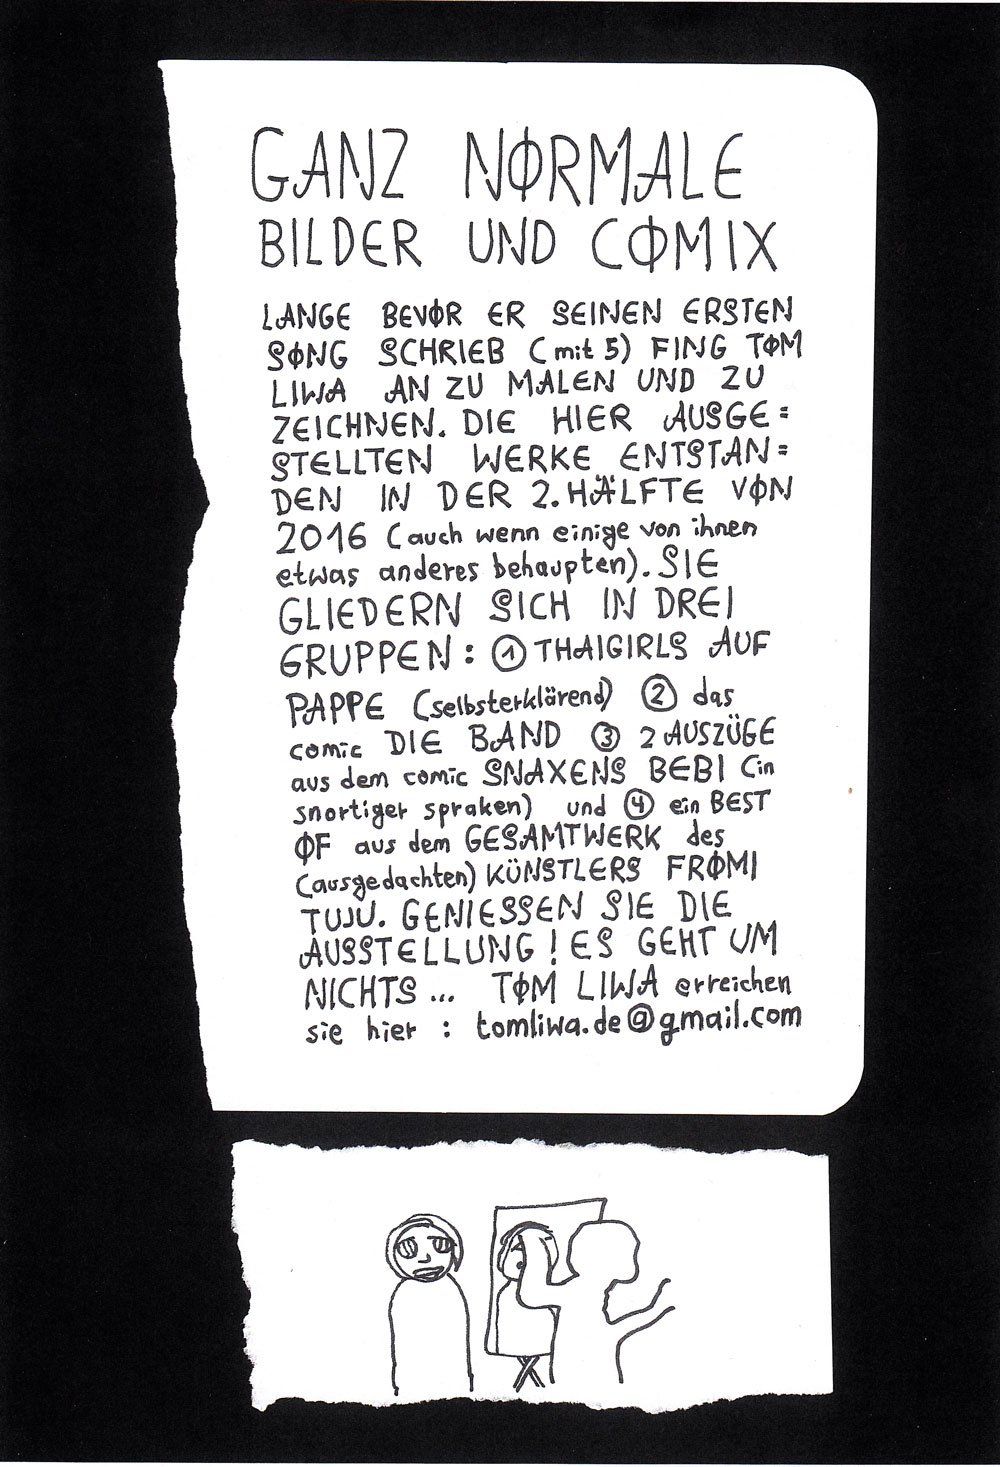 GANZ NØRMALE
BILDER UND CØMIX
LANGE BEVØR ER SEINEN ERSTEN
SØNG SCHRIEB (mit 5) FING TØM
LIWA AN ZU MALEN UND ZU
ZEICHNEN. DIE HIER AUSGE=
STELLTEN WERKE ENTSTAN=
DEN IN DER 2. HÄLFTE VØN
2016 (auch wenn einige von ihnen
etwas anderes behaupten). SIE
GLIEDERN SICH IN DREI
GRUPPEN: ① THAIGIRLS AUF
PAPPE (selbsterklärend) ② das
comic DIE BAND ③ 2 AUSZÜGE
aus dem comic SNAXENS BEBI (in
snortiger spraken) und ④ ein BEST
ØF aus dem GESAMTWERK des
(ausgedachten) KÜNSTLERS FRØMI
TUJU. GENIESSEN SIE DIE
AUSSTELLUNG! ES GEHT UM
NICHTS... TØM LIWA erreichen
sie hier : tomliwa.de@gmail.com